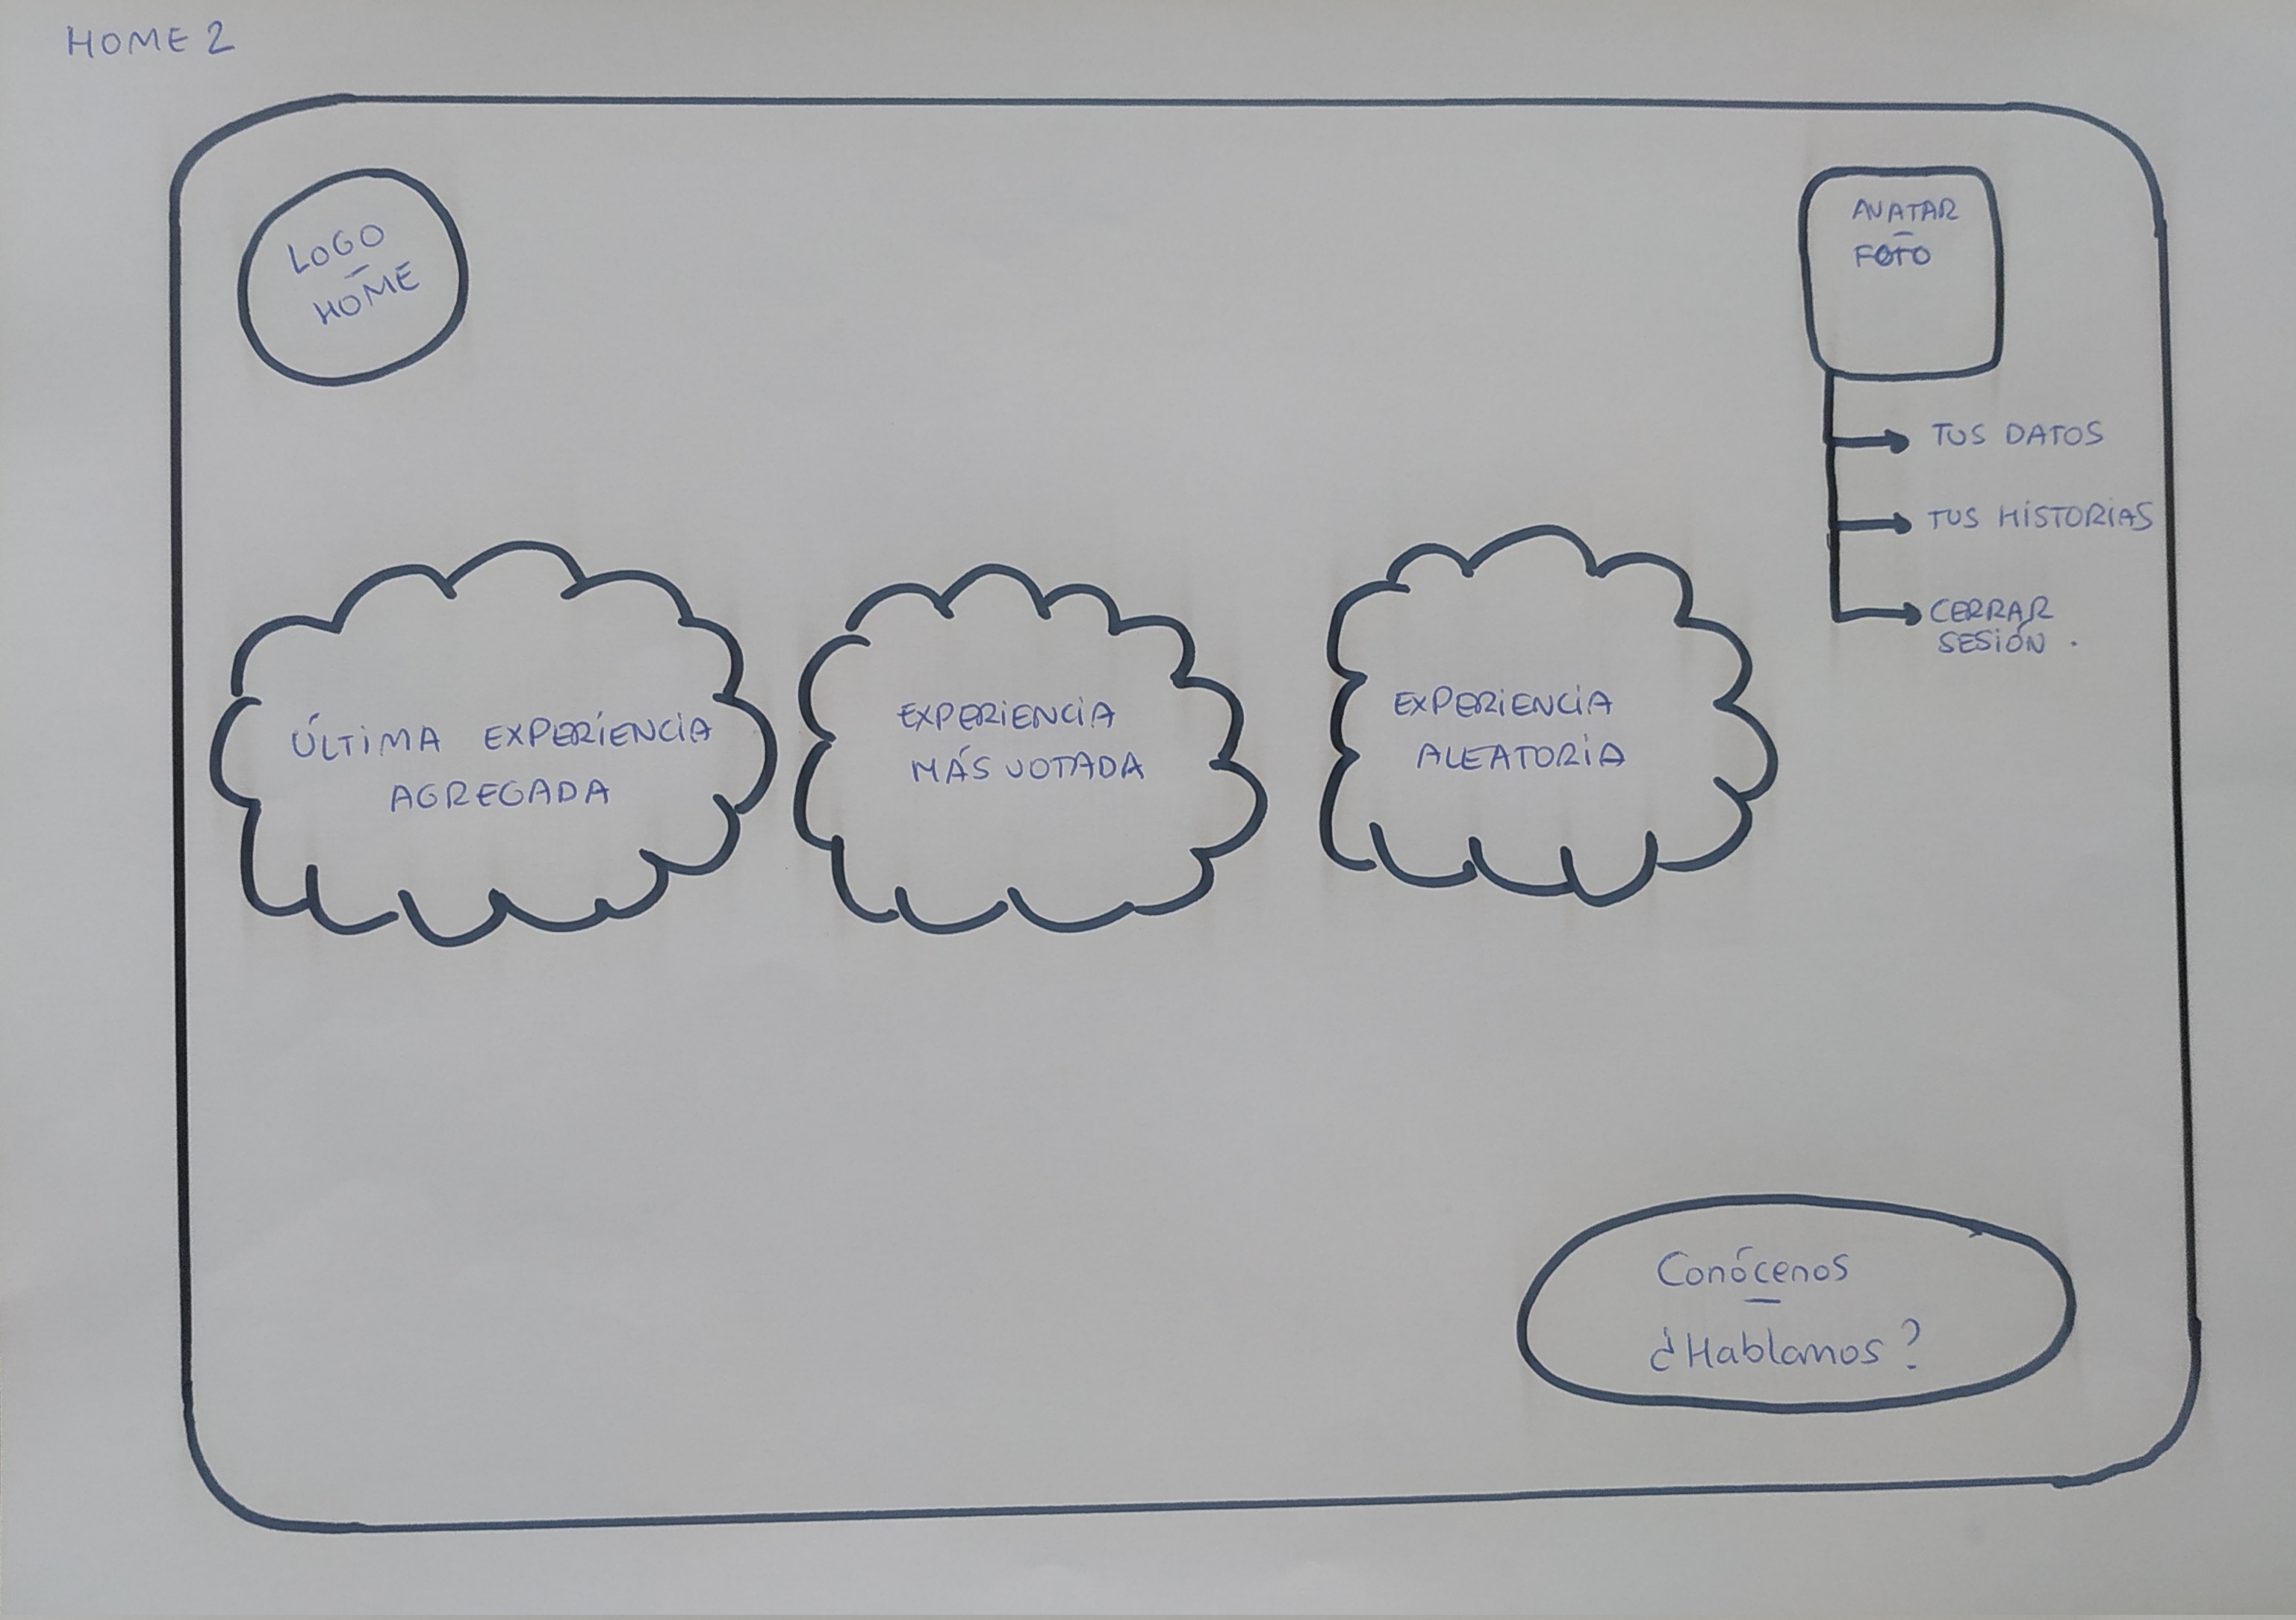 HOME 2
LOGO
–
HOME
AVATAR
–
FOTO
TUS DATOS
TUS HISTORIAS
CERRAR
SESIÓN .
ÚLTIMA EXPERIENCIA
AGREGADA
EXPERIENCIA
MÁS VOTADA
EXPERIENCIA
ALEATORIA
Conócenos
–
¿Hablamos?